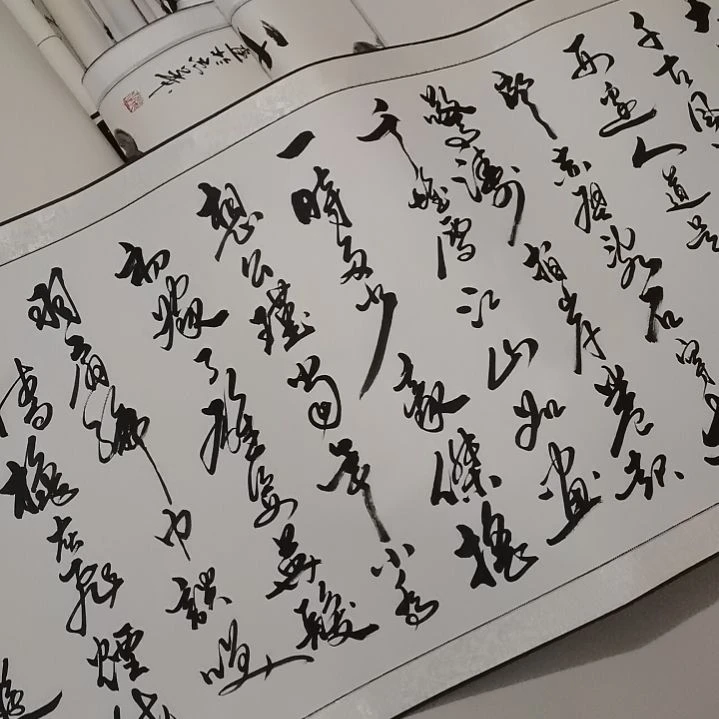 千古風
西邊人道是
郎赤壁亂石穿空
驚濤拍岸卷起
千堆雪江山如畫
一時多少豪傑遙
想公瑾當年小喬
初嫁了雄姿英發
羽扇綸巾談笑
檣櫓灰飛煙滅